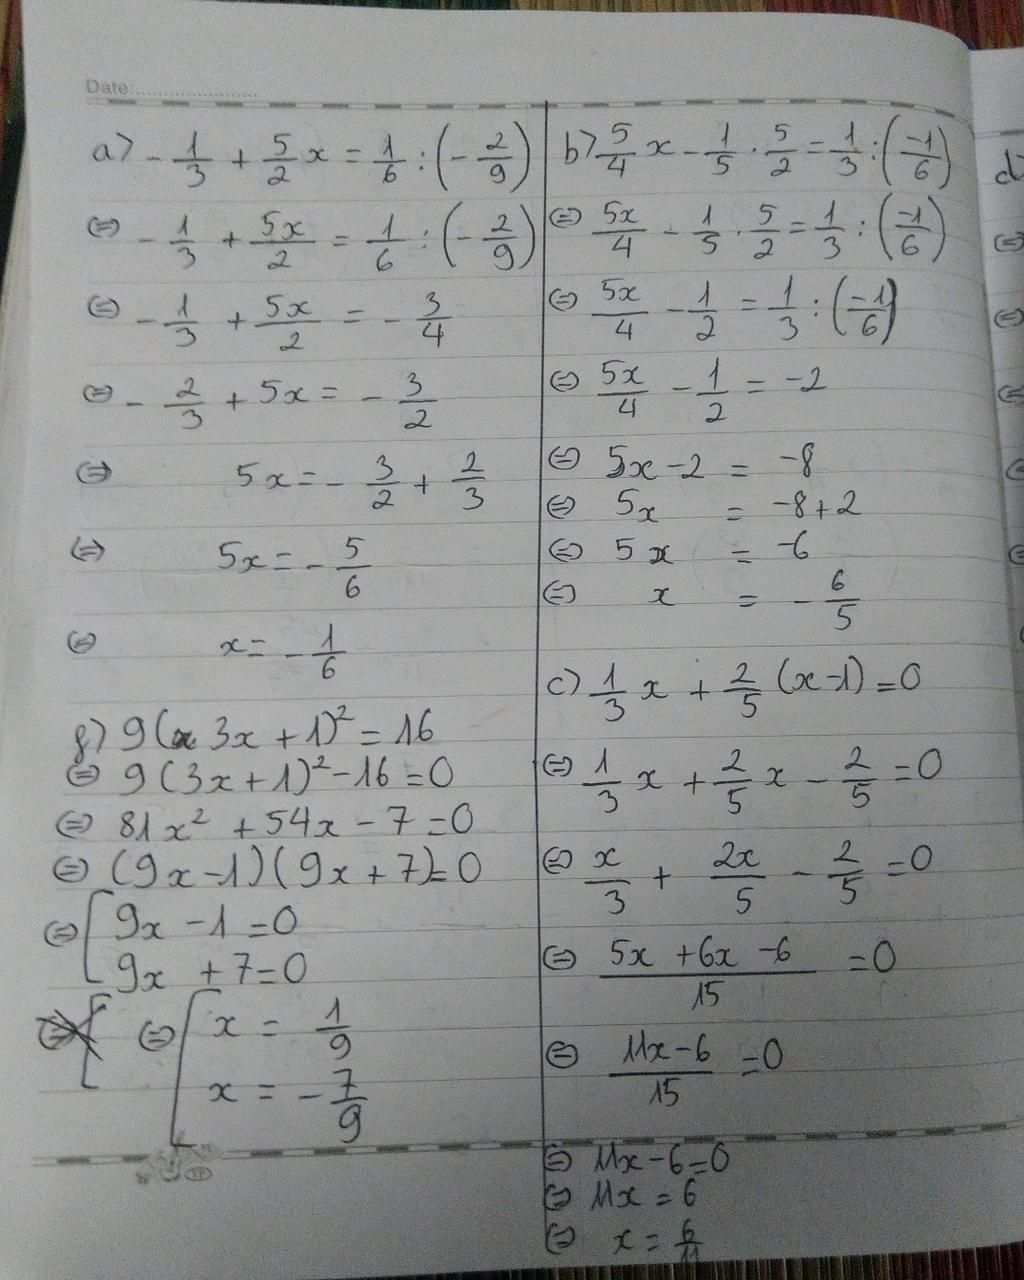 Date:
a) -1/3 + 5/2 x = 1/6 : (-2/9)
⇔ -1/3 + 5x/2 = 1/6 : (-2/9)
⇔ -1/3 + 5x/2 = -3/4
⇔ -2/3 + 5x = -3/2
⇔ 5x = -3/2 + 2/3
⇔ 5x = -5/6
⇔ x = -1/6
f) 9(3x + 1)² = 16
⇔ 9(3x + 1)² - 16 = 0
⇔ 81x² + 54x - 7 = 0
⇔ (9x - 1)(9x + 7) = 0
⇔ [ 9x - 1 = 0
9x + 7 = 0
⇔ [ x = 1/9
x = -7/9
b) 5/4 x - 1/5 . 5/2 = 1/3 : (-1/6)
⇔ 5x/4 - 1/5 . 5/2 = 1/3 : (-1/6)
⇔ 5x/4 - 1/2 = 1/3 : (-1/6)
⇔ 5x/4 - 1/2 = -2
⇔ 5x - 2 = -8
⇔ 5x = -8 + 2
⇔ 5x = -6
⇔ x = -6/5
c) 1/3 x + 2/5 (x - 1) = 0
⇔ 1/3 x + 2/5 x - 2/5 = 0
⇔ x/3 + 2x/5 - 2/5 = 0
⇔ (5x + 6x - 6)/15 = 0
⇔ (11x - 6)/15 = 0
⇔ 11x - 6 = 0
⇔ 11x = 6
⇔ x = 6/11
d)
⇔
⇔
⇔